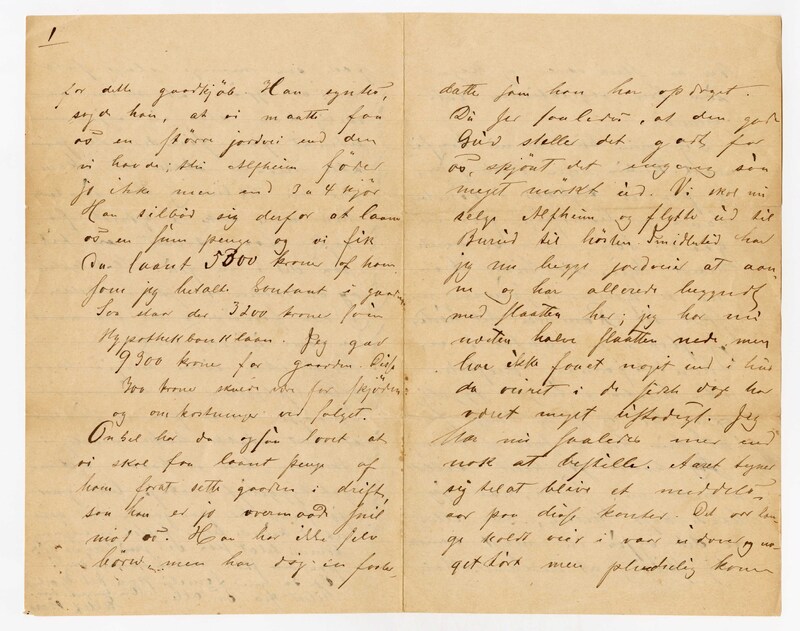 1
for dette gaardkjöb. Han syntes,
sagde han, at vi maatte faa
os en större jordvei end den
vi havde; thi Alfheim föder
jo ikke mer end 3 a 4 kjör
Han tilböd sig derfor at laane
os en sum penge og vi fik
da laant 5800 kroner af ham
som jeg betalte kontant i gaarden
Saa staar der 3200 kroner som
Hypothekbanklaan. Jeg gav
9300 kroner for gaarden. Disse
300 kroner skulde være for skjöden
og omkostninger ved salget.
Onkel har da ogsaa lovet at
vi skal faa laant penge af
ham forat sette gaarden i drift,
saa han er jo overmaade snil
mod os. Han har ikke selv
börn, men har dog en foster-
datter som han har opdraget.
Du ser saaledes, at den gode
Gud steller det godt for
os, skjönt det engang saa
meget mörkt ud. Vi skal nu
selge Alfheim og flytte ud til
Burud til hösten. Imidlertid har
jeg nu begge jordveie at aan-
ne og har allerede begyndt
med slaatten her; jeg har nu
næsten halve slaatten nede men
har ikke faaet noget ind i hus
da veiret i de siste dage har
været meget ustadigt. Jeg
har nu saaledes mer end
nok at bestille. Aaret synes
sig tilat blive et middels
aar paa disse kanter. Det var lan-
ge koldt veir i vaar udover og no-
get tört men pludselig kom